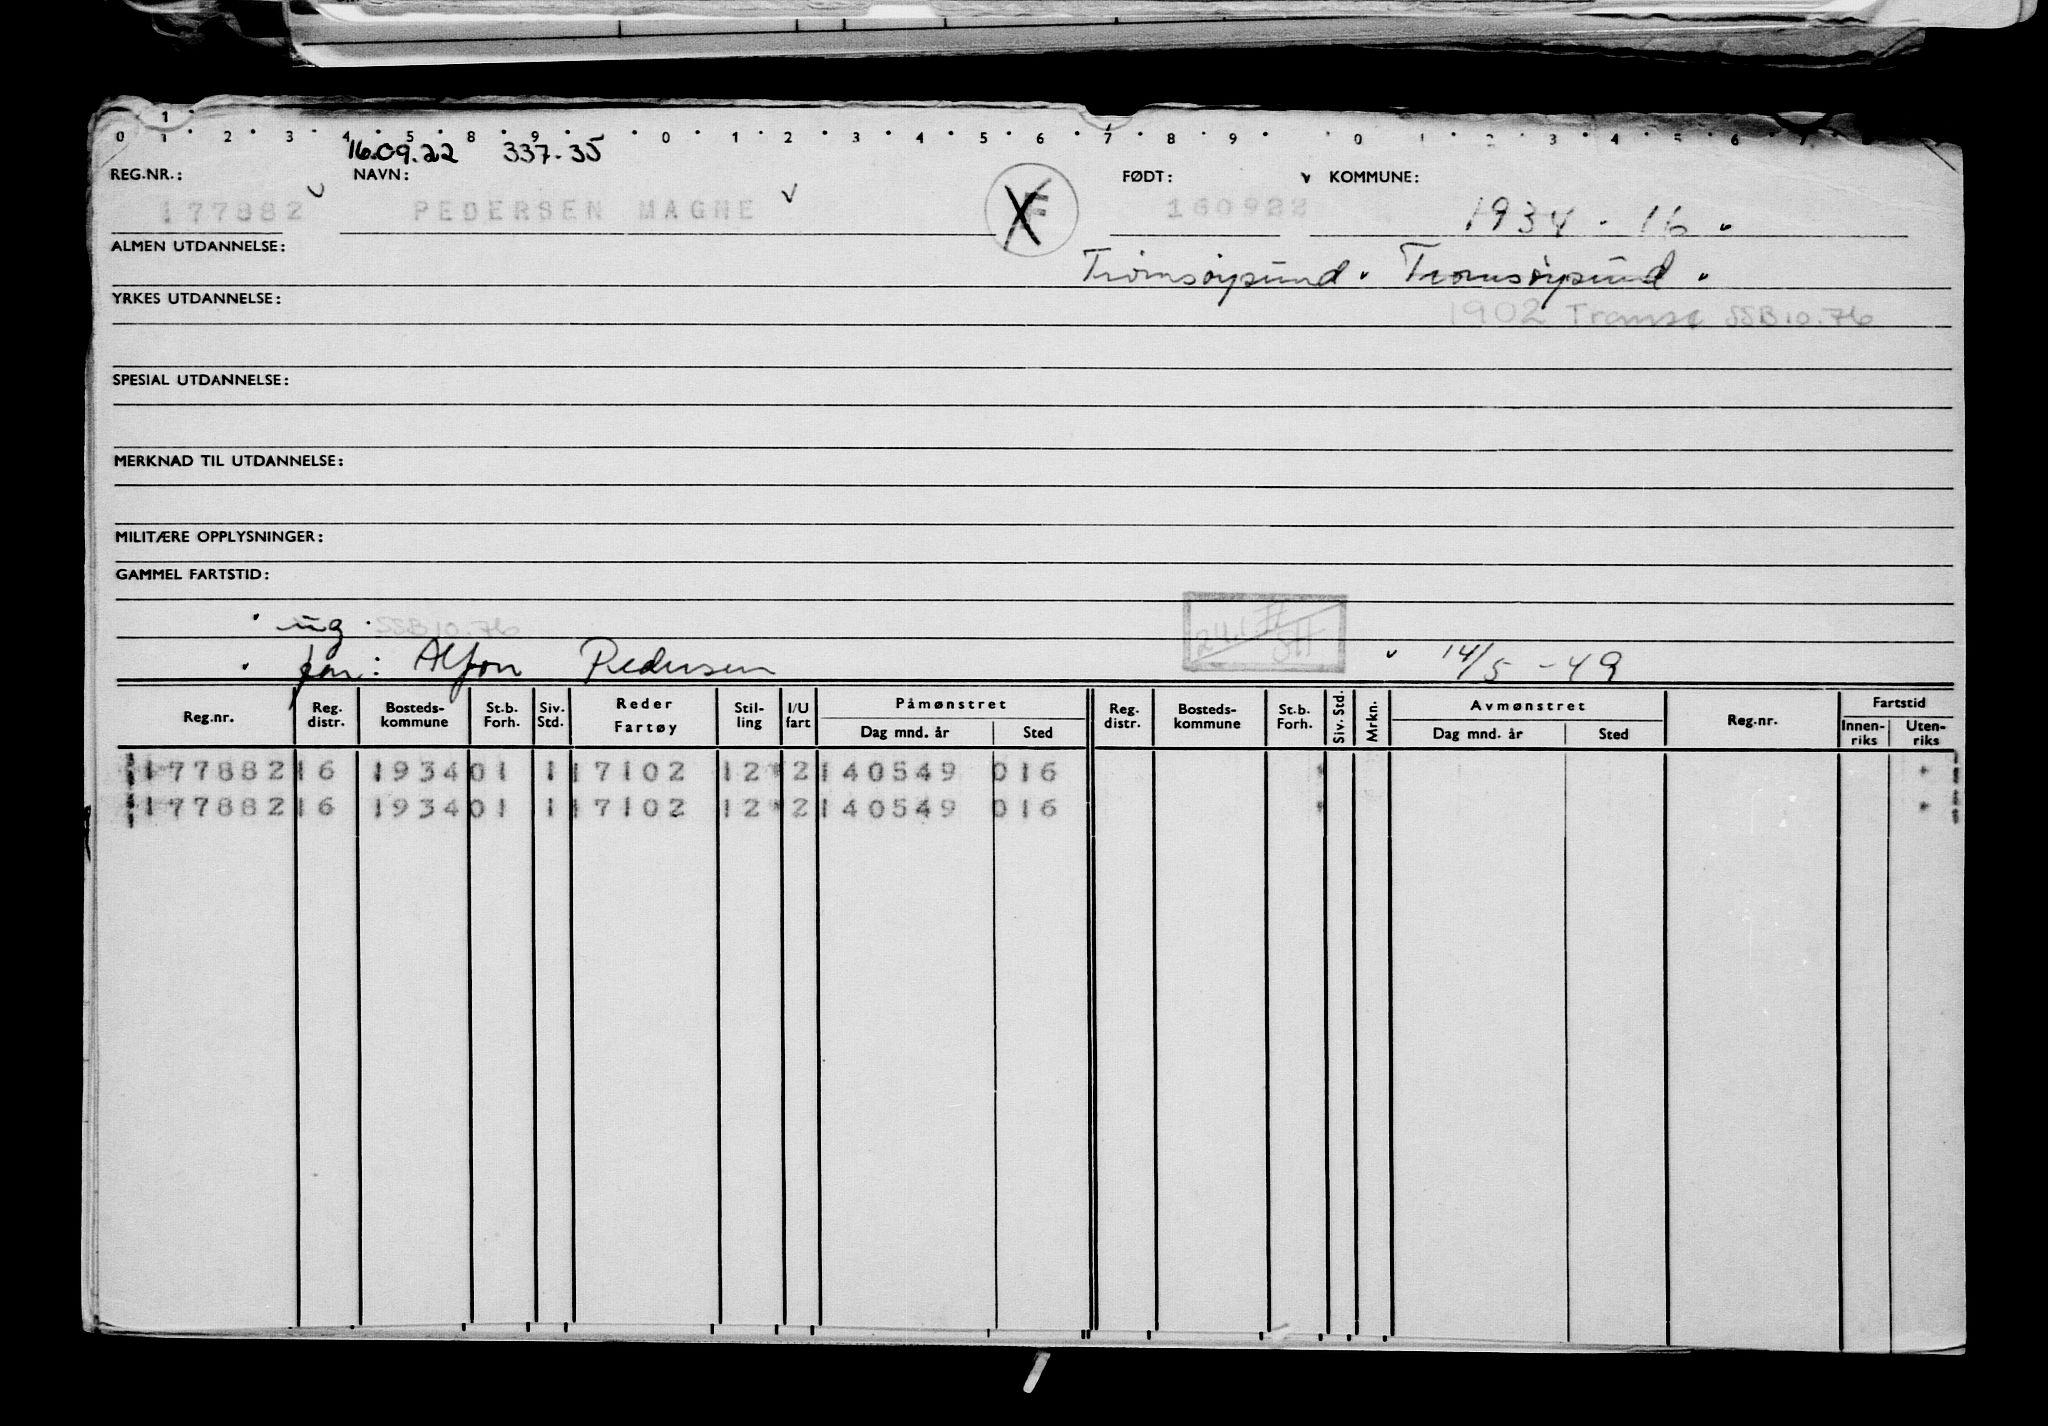 0 1 2 3 4 5 8 9 0 1 2 3 4 5 6 7 8 9 0 1 2 3 4 5 6 7
16.09.22 337.35
REG.NR.: NAVN: FØDT: KOMMUNE:
177882 PEDERSEN MAGNE 160922 1934 - 16
ALMEN UTDANNELSE: Tromsøysund. Tromsøysund.
YRKES UTDANNELSE: 1902 Tromsø SSB 10.76
SPESIAL UTDANNELSE:
MERKNAD TIL UTDANNELSE:
MILITÆRE OPPLYSNINGER:
GAMMEL FARTSTID:
ug. SSB 10.76
far: Alfon Pedersen 14/5 -49
Reg.nr. Reg. distr. Bosteds-kommune St.b. Forh. Siv. Std. Reder Fartøy Stil-ling I/U fart Påmønstret Dag mnd. år Sted Reg. distr. Bosteds-kommune St.b. Forh. Siv. Std. Mrkn. Avmønstret Dag mnd. år Sted Reg.nr. Fartstid Innen-riks Uten-riks
177882 16 1934 01 1 17102 12 2 140549 016
177882 16 1934 01 1 17102 12 2 140549 016